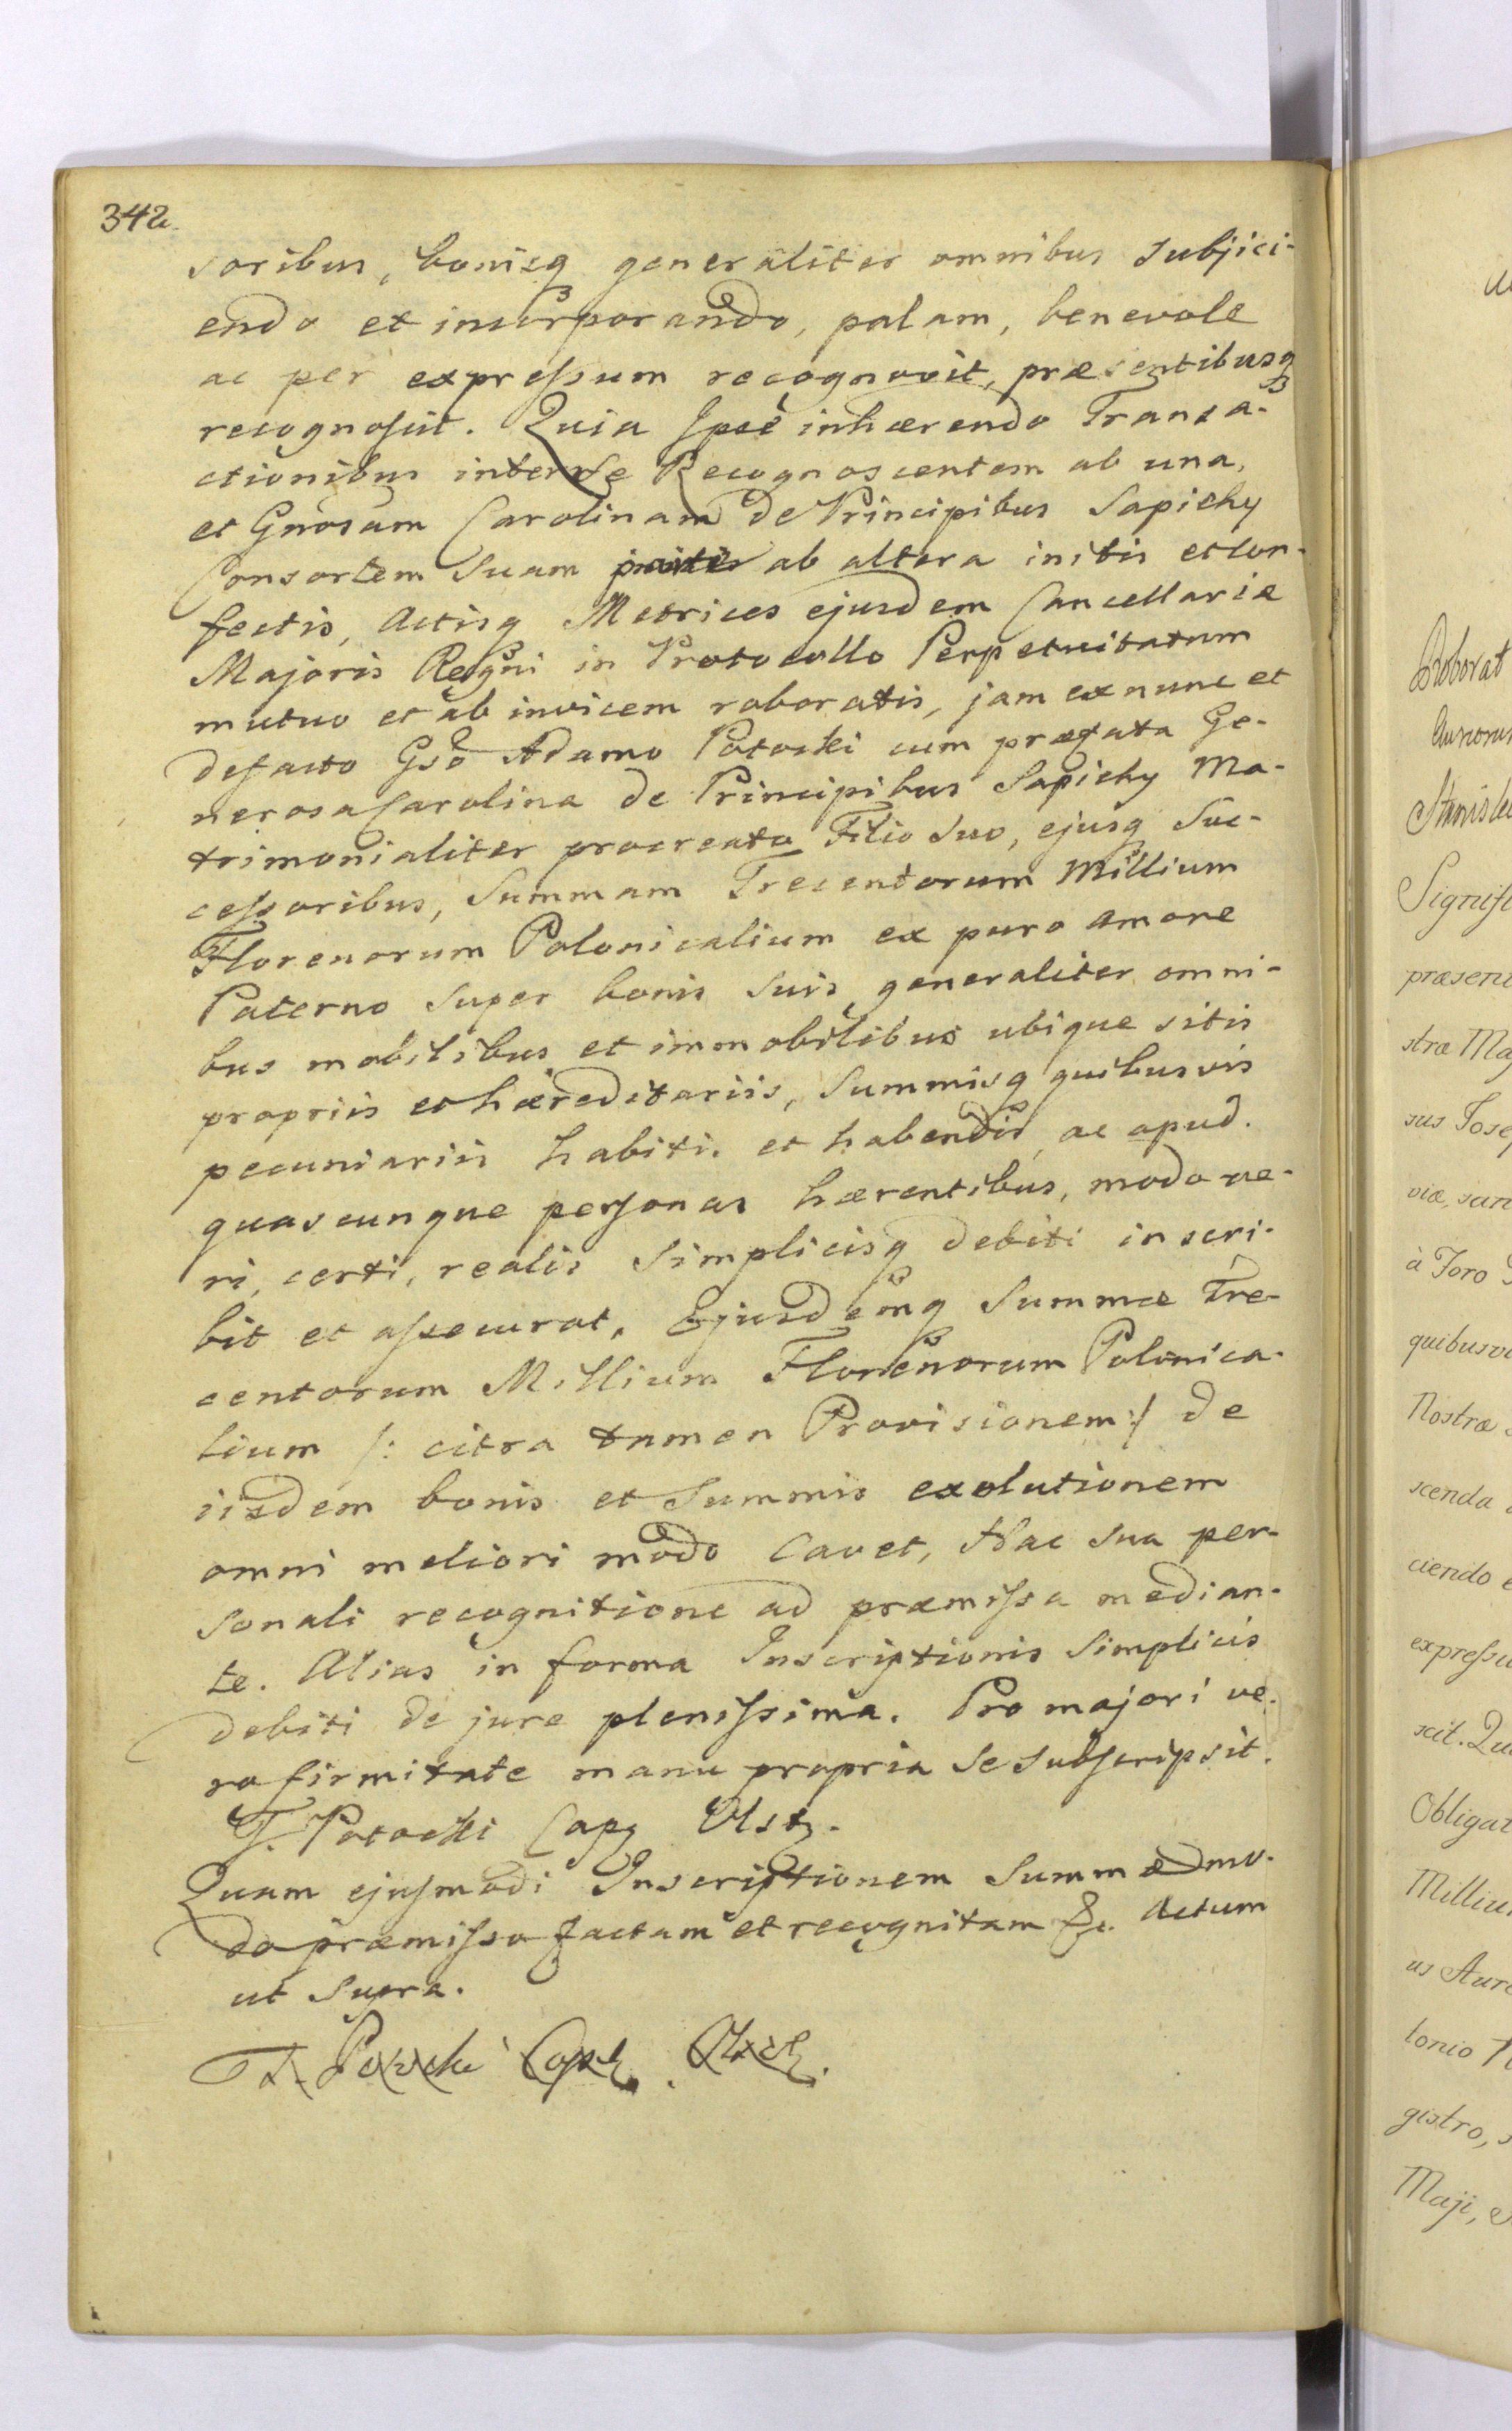 342.
soribus, bonisq generaliter omnibus subjici-
endo et incorporando, palam, benevole
ac per expressum recognovit, præsentibusq
recognoscit. Quia Ipse inhærendo Transa-
ctionibus inter se Recognoscentem ab una,
et Gnosam Carolinam de Principibus Sapiehy
Consortem Suam ab altera initis et con-
fectis, Actisq Metrices ejusdem Cancellariæ
Majoris Regni in Protocollo Perpetuitatum
mutuo et ab invicem roboratis, jam ex nunc et
defacto Gso Adamo Potocki cum præfata Ge-
nerosa Carolina de Principibus Sapiehy Ma-
trimonialiter procreato Filio Suo, ejusq Suc-
cessoribus, Summam Trecentorum Millium
Florenorum Polonicalium ex puro amore
Paterno Super bonis Suis generaliter omni-
bus mobilibus et immobilibus ubique sitis
propriis et hæreditariis, Summisq quibusvis
pecuniariis habitis et habendis, ac apud.
quascunque personas hærentibus, modo ve-
ri, certi, realis Simplicisq debiti inscri-
bit et assecurat, Ejusdemq Summæ Tre-
centorum Millium Florenorum Polonica-
lium /: citra tamen Provisionem :/ de
iisdem bonis et Summis exolutionem
omni meliori modo Cavet, Hac sua per-
sonali recognitione ad præmissa median-
te. Alias in forma Inscriptionis Simplicis
debiti de jure plenissima. Pro majori ve-
ro firmitate manu propria se subscripsit.
T. Potocki Cap Olst.
Quam ejusmodi Inscriptionem Summæ mo-
do præmisso factam et recognitam &c. Actum
ut Supra.
T. Potocki Cap. Olst.
Roborat
Stanisla
Signifi
præsent
stræ Ma
sus Jose
viæ, san
à Foro
quibusv
Nostræ
scenda
ciendo e
expressu
scit. Qu
Obligat
Milliu
us Aure
lonio N
gistro, s
Maji,